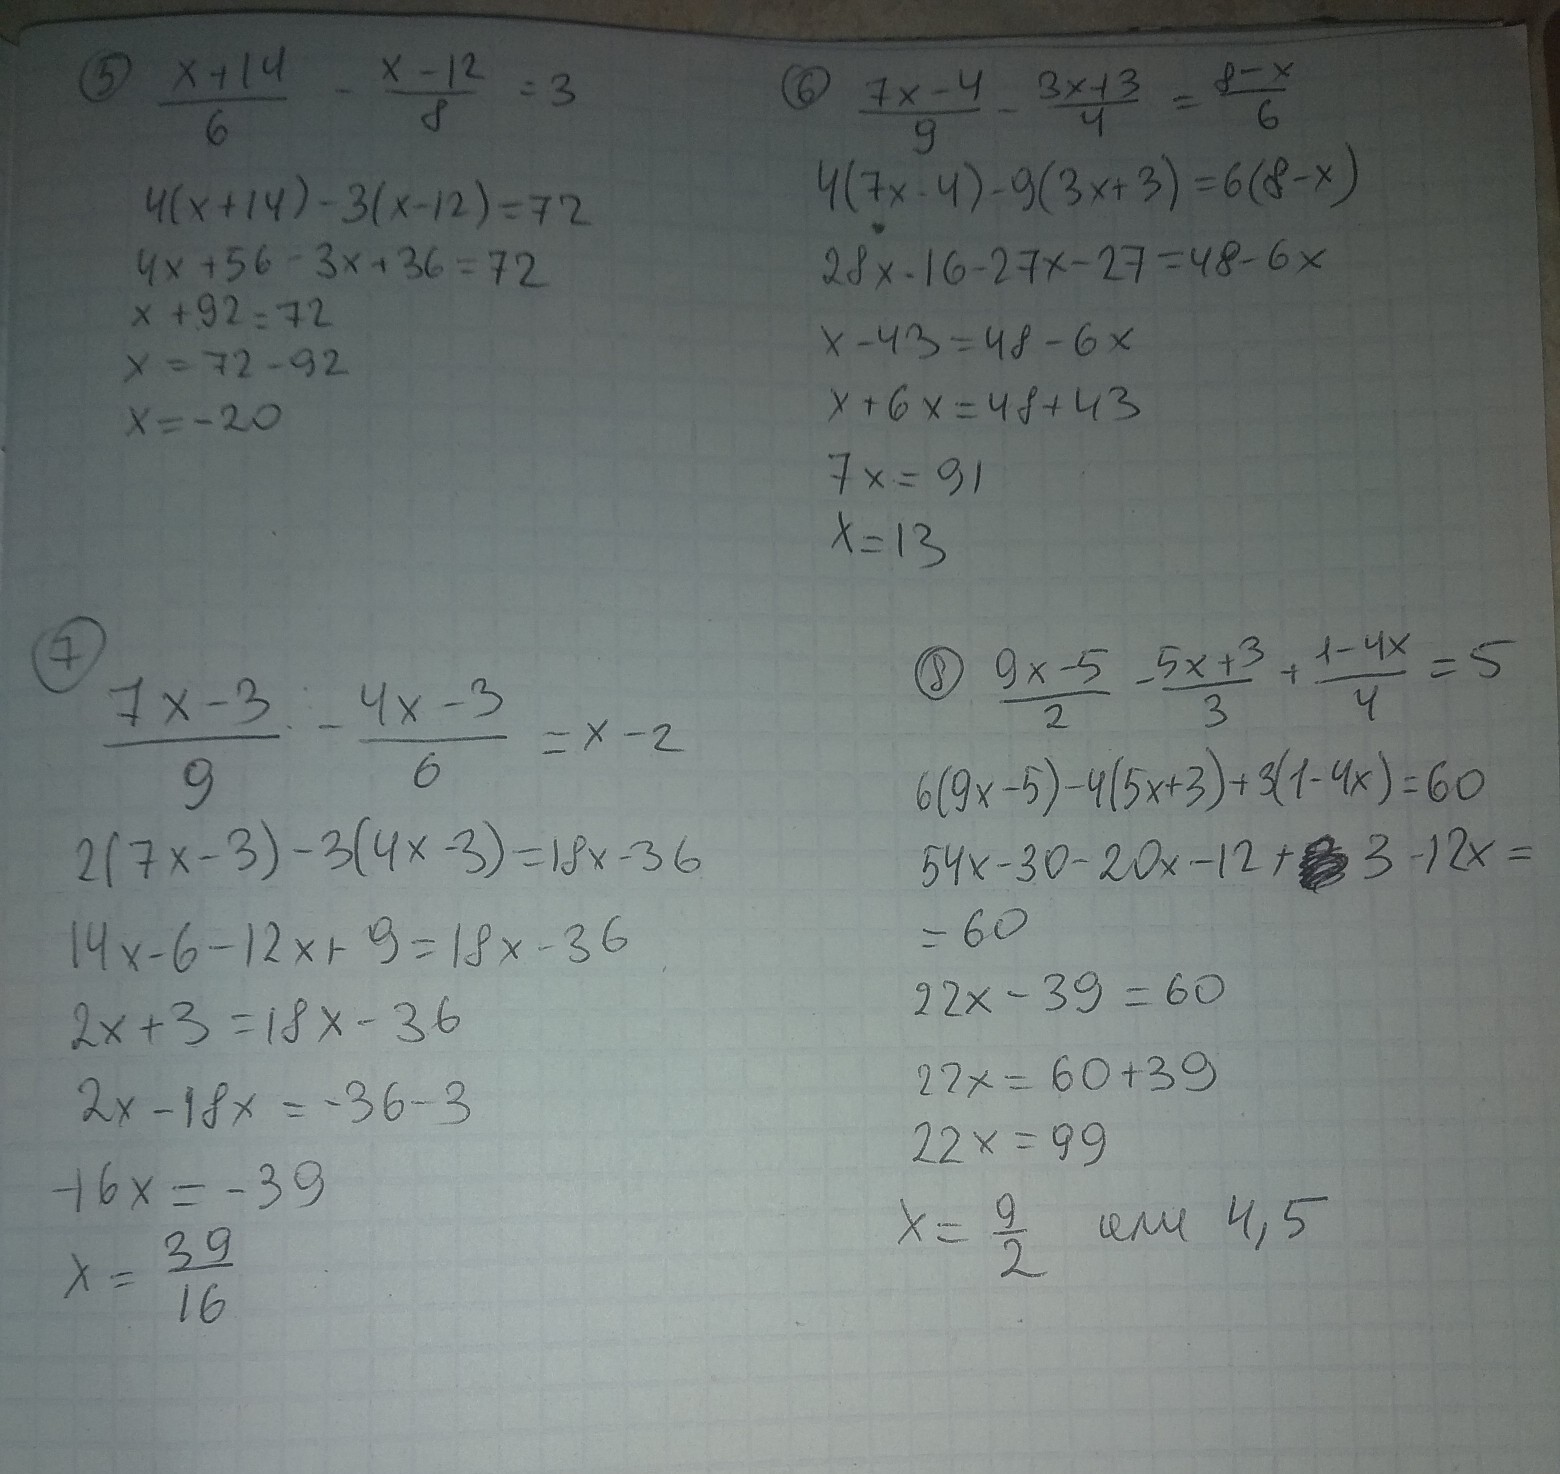 ⑤ (x+14)/6 - (x-12)/8 = 3
4(x+14)-3(x-12)=72
4x+56-3x+36=72
x+92=72
x=72-92
x=-20
⑥ (7x-4)/9 - (3x+3)/4 = (8-x)/6
4(7x-4)-9(3x+3)=6(8-x)
28x-16-27x-27=48-6x
x-43=48-6x
x+6x=48+43
7x=91
x=13
⑦
(7x-3)/9 - (4x-3)/6 = x-2
2(7x-3)-3(4x-3)=18x-36
14x-6-12x+9=18x-36
2x+3=18x-36
2x-18x=-36-3
-16x=-39
x=39/16
⑧ (9x-5)/2 - (5x+3)/3 + (1-4x)/4 = 5
6(9x-5)-4(5x+3)+3(1-4x)=60
54x-30-20x-12+3-12x=
=60
22x-39=60
22x=60+39
22x=99
x=9/2 или 4,5